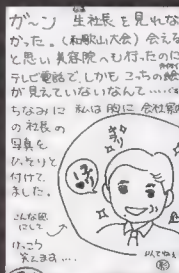 ガ〜ン 生社長を見れな
かった。(和歌山大会)会える
と思い美容院へも行ったのに
テレビ電話で、しかもこっちの絵
が見えていないなんて……
ちなみに私は胸に会社案内
の社長の
写真を
ひっそりと
付けて
ました。
キラリ
こんな風
にして
けっこう
笑えます…